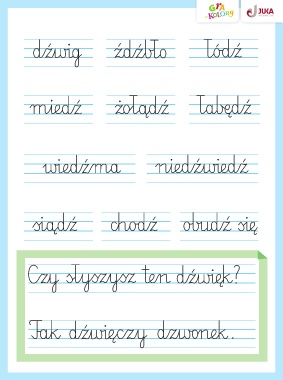 Gra w Kolory JUKA
dźwig źdźbło łódź
miedź żołądź łabędź
wiedźma niedźwiedź
siądź chodź obudź się
Czy słyszysz ten dźwięk?
Tak dźwięczy dzwonek.